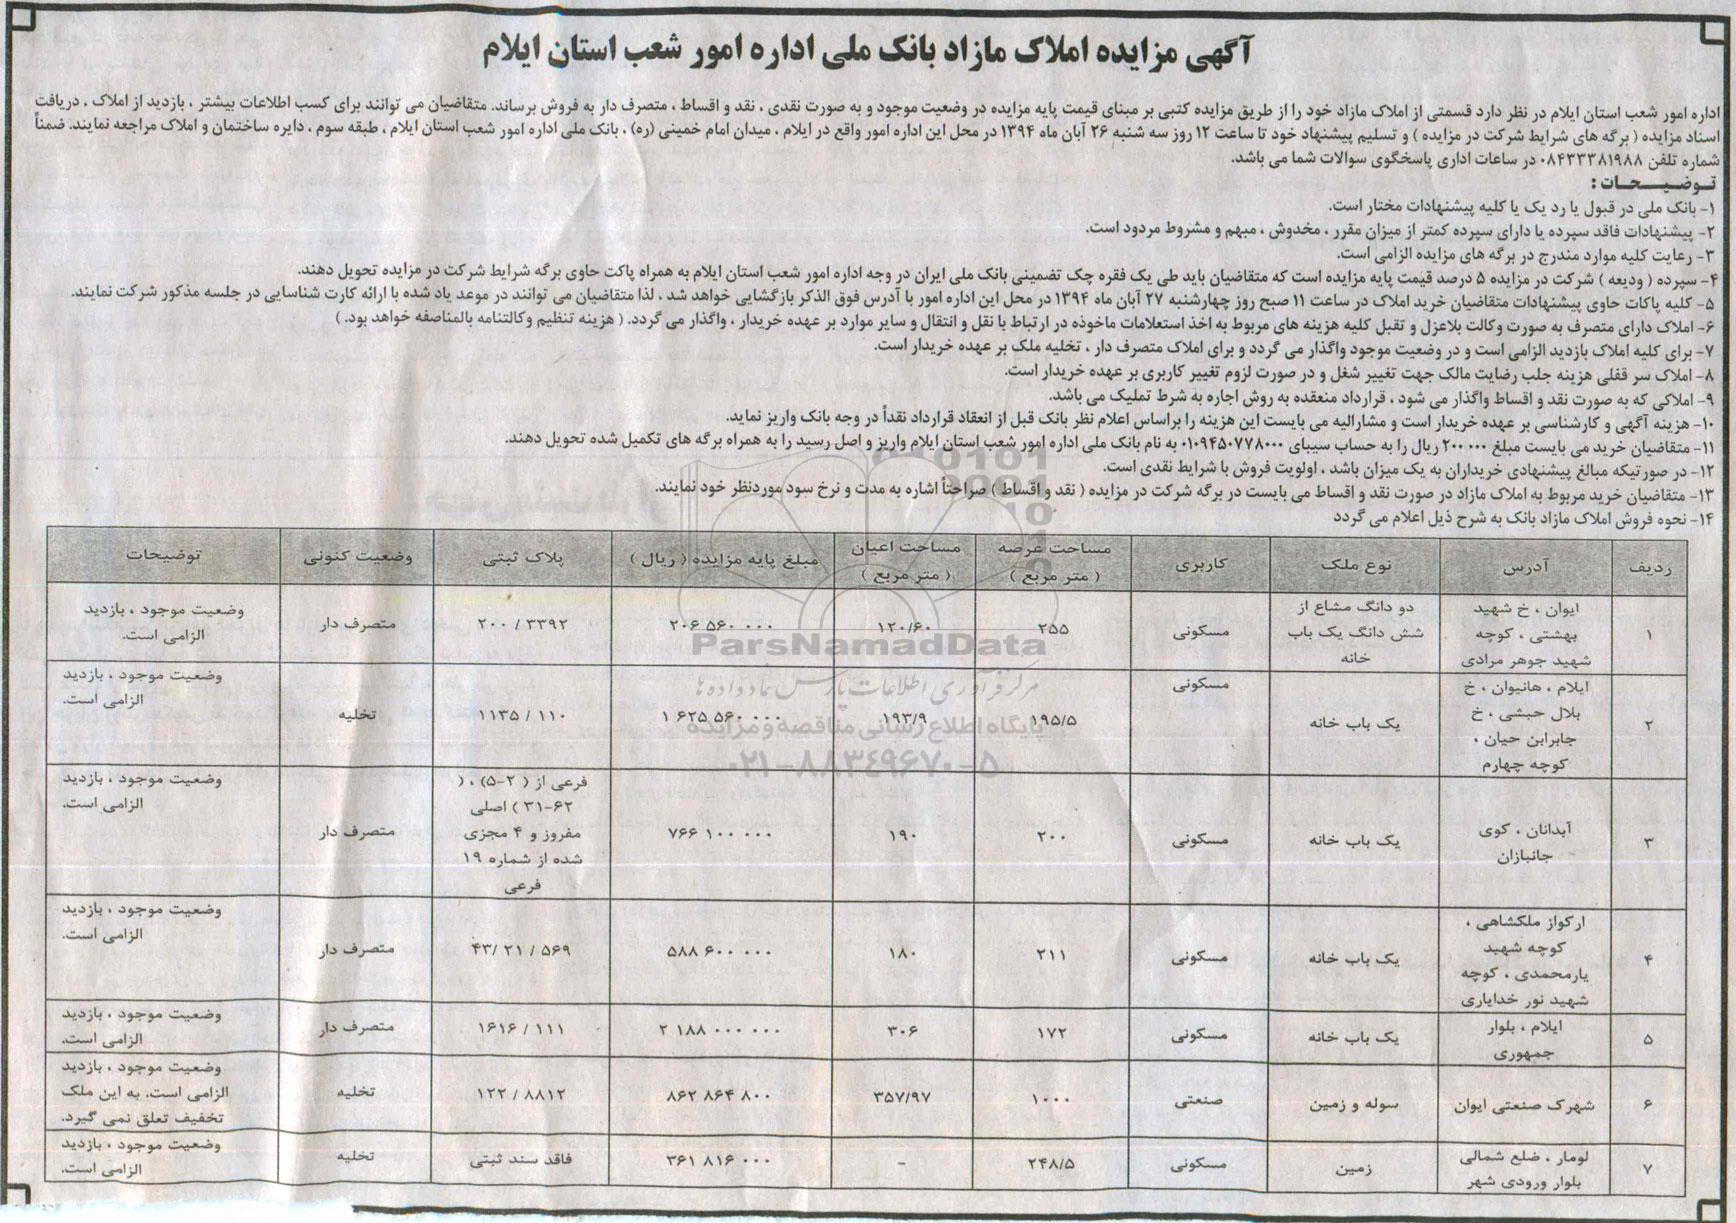 آگهی مزایده املاک مازاد بانک ملی اداره امور شعب استان ایلام
اداره امور شعب استان ایلام در نظر دارد قسمتی از املاک مازاد خود را از طریق مزایده کتبی بر مبنای قیمت پایه مزایده در وضعیت موجود و به صورت نقدی ، نقد و اقساط ، متصرف دار به فروش برساند. متقاضیان می توانند برای کسب اطلاعات بیشتر ، بازدید از املاک ، دریافت
اسناد مزایده ( برگه های شرایط شرکت در مزایده ) و تسلیم پیشنهاد خود تا ساعت ۱۲ روز سه شنبه ۲۶ آبان ماه ۱۳۹۴ در محل این اداره امور واقع در ایلام ، میدان امام خمینی (ره) ، بانک ملی اداره امور شعب استان ایلام ، طبقه سوم ، دایره ساختمان و املاک مراجعه نمایند. ضمناً
شماره تلفن ۰۸۴۳۳۳۸۱۹۸۸ در ساعات اداری پاسخگوی سوالات شما می باشد.
توضیحات :
۱- بانک ملی در قبول یا رد یک یا کلیه پیشنهادات مختار است.
۲- پیشنهادات فاقد سپرده یا دارای سپرده کمتر از میزان مقرر ، مخدوش ، مبهم و مشروط مردود است.
۳- رعایت کلیه موارد مندرج در برگه های مزایده الزامی است.
۴- سپرده ( ودیعه ) شرکت در مزایده ۵ درصد قیمت پایه مزایده است که متقاضیان باید طی یک فقره چک تضمینی بانک ملی ایران در وجه اداره امور شعب استان ایلام به همراه پاکت حاوی برگه شرایط شرکت در مزایده تحویل دهند.
۵- کلیه پاکات حاوی پیشنهادات متقاضیان خرید املاک در ساعت ۱۱ صبح روز چهارشنبه ۲۷ آبان ماه ۱۳۹۴ در محل این اداره امور با آدرس فوق الذکر بازگشایی خواهد شد ، لذا متقاضیان می توانند در موعد یاد شده با ارائه کارت شناسایی در جلسه مذکور شرکت نمایند.
۶- املاک دارای متصرف به صورت وکالت بلاعزل و تقبل کلیه هزینه های مربوط به اخذ استعلامات ماخوذه در ارتباط با نقل و انتقال و سایر موارد بر عهده خریدار ، واگذار می گردد. ( هزینه تنظیم وکالتنامه بالمناصفه خواهد بود. )
۷- برای کلیه املاک بازدید الزامی است و در وضعیت موجود واگذار می گردد و برای املاک متصرف دار ، تخلیه ملک بر عهده خریدار است.
۸- املاک سر قفلی هزینه جلب رضایت مالک جهت تغییر شغل و در صورت لزوم تغییر کاربری بر عهده خریدار است.
۹- املاکی که به صورت نقد و اقساط واگذار می شود ، قرارداد منعقده به روش اجاره به شرط تملیک می باشد.
۱۰- هزینه آگهی و کارشناسی بر عهده خریدار است و مشارالیه می بایست این هزینه را براساس اعلام نظر بانک قبل از انعقاد قرارداد نقداً در وجه بانک واریز نماید.
۱۱- متقاضیان خرید می بایست مبلغ ۲۰۰.۰۰۰ ریال را به حساب سیبای ۰۱۰۹۴۵۰۷۷۸۰۰۰ به نام بانک ملی اداره امور شعب استان ایلام واریز و اصل رسید را به همراه برگه های تکمیل شده تحویل دهند.
۱۲- در صورتیکه مبالغ پیشنهادی خریداران به یک میزان باشد ، اولویت فروش با شرایط نقدی است.
۱۳- متقاضیان خرید مربوط به املاک مازاد در صورت نقد و اقساط می بایست در برگه شرکت در مزایده ( نقد و اقساط ) صراحتاً اشاره به مدت و نرخ سود موردنظر خود نمایند.
۱۴- نحوه فروش املاک مازاد بانک به شرح ذیل اعلام می گردد
ردیف آدرس نوع ملک کاربری مساحت عرصه ( متر مربع ) مساحت اعیان ( متر مربع ) مبلغ پایه مزایده ( ریال ) پلاک ثبتی وضعیت کنونی توضیحات
۱ ایوان ، خ شهید بهشتی ، کوچه شهید جوهر مرادی دو دانگ مشاع از شش دانگ یک باب خانه مسکونی ۲۵۵ ۱۲۰/۶۰ ۲۰۶ ۵۶۰ ۰۰۰ ۲۰۰ / ۳۳۹۲ متصرف دار وضعیت موجود ، بازدید الزامی است.
۲ ایلام ، هانیوان ، خ بلال حبشی ، خ جابرابن حیان ، کوچه چهارم یک باب خانه مسکونی ۱۹۵/۵ ۱۹۳/۹ ۱ ۶۲۵ ۵۶۰ ۰۰۰ ۱۱۳۵ / ۱۱۰ تخلیه وضعیت موجود ، بازدید الزامی است.
۳ آبدانان ، کوی جانبازان یک باب خانه مسکونی ۲۰۰ ۱۹۰ ۷۶۶ ۱۰۰ ۰۰۰ فرعی از ( ۲-۵) ، ( ۶۲-۳۱ ) اصلی مفروز و ۴ مجزی شده از شماره ۱۹ فرعی متصرف دار وضعیت موجود ، بازدید الزامی است.
۴ ارکواز ملکشاهی ، کوچه شهید یارمحمدی ، کوچه شهید نور خدایاری یک باب خانه مسکونی ۲۱۱ ۱۸۰ ۵۸۸ ۶۰۰ ۰۰۰ ۴۳/ ۲۱ / ۵۶۹ متصرف دار وضعیت موجود ، بازدید الزامی است.
۵ ایلام ، بلوار جمهوری یک باب خانه مسکونی ۱۷۲ ۳۰۶ ۲ ۱۸۸ ۰۰۰ ۰۰۰ ۱۶۱۶ / ۱۱۱ متصرف دار وضعیت موجود ، بازدید الزامی است.
۶ شهرک صنعتی ایوان سوله و زمین صنعتی ۱۰۰۰ ۳۵۷/۹۷ ۸۶۲ ۸۶۴ ۸۰۰ ۱۲۲ / ۸۸۱۲ تخلیه وضعیت موجود ، بازدید الزامی است. به این ملک تخفیف تعلق نمی گیرد.
۷ لومار ، ضلع شمالی بلوار ورودی شهر زمین مسکونی ۲۴۸/۵ - ۳۶۱ ۸۱۶ ۰۰۰ فاقد سند ثبتی تخلیه وضعیت موجود ، بازدید الزامی است.
ParsNamadData
مرکز فرآوری اطلاعات پارس نماد داده ها
پایگاه اطلاع رسانی مناقصه و مزایده
۰۲۱-۸۸۳۴۹۶۷۰-۵